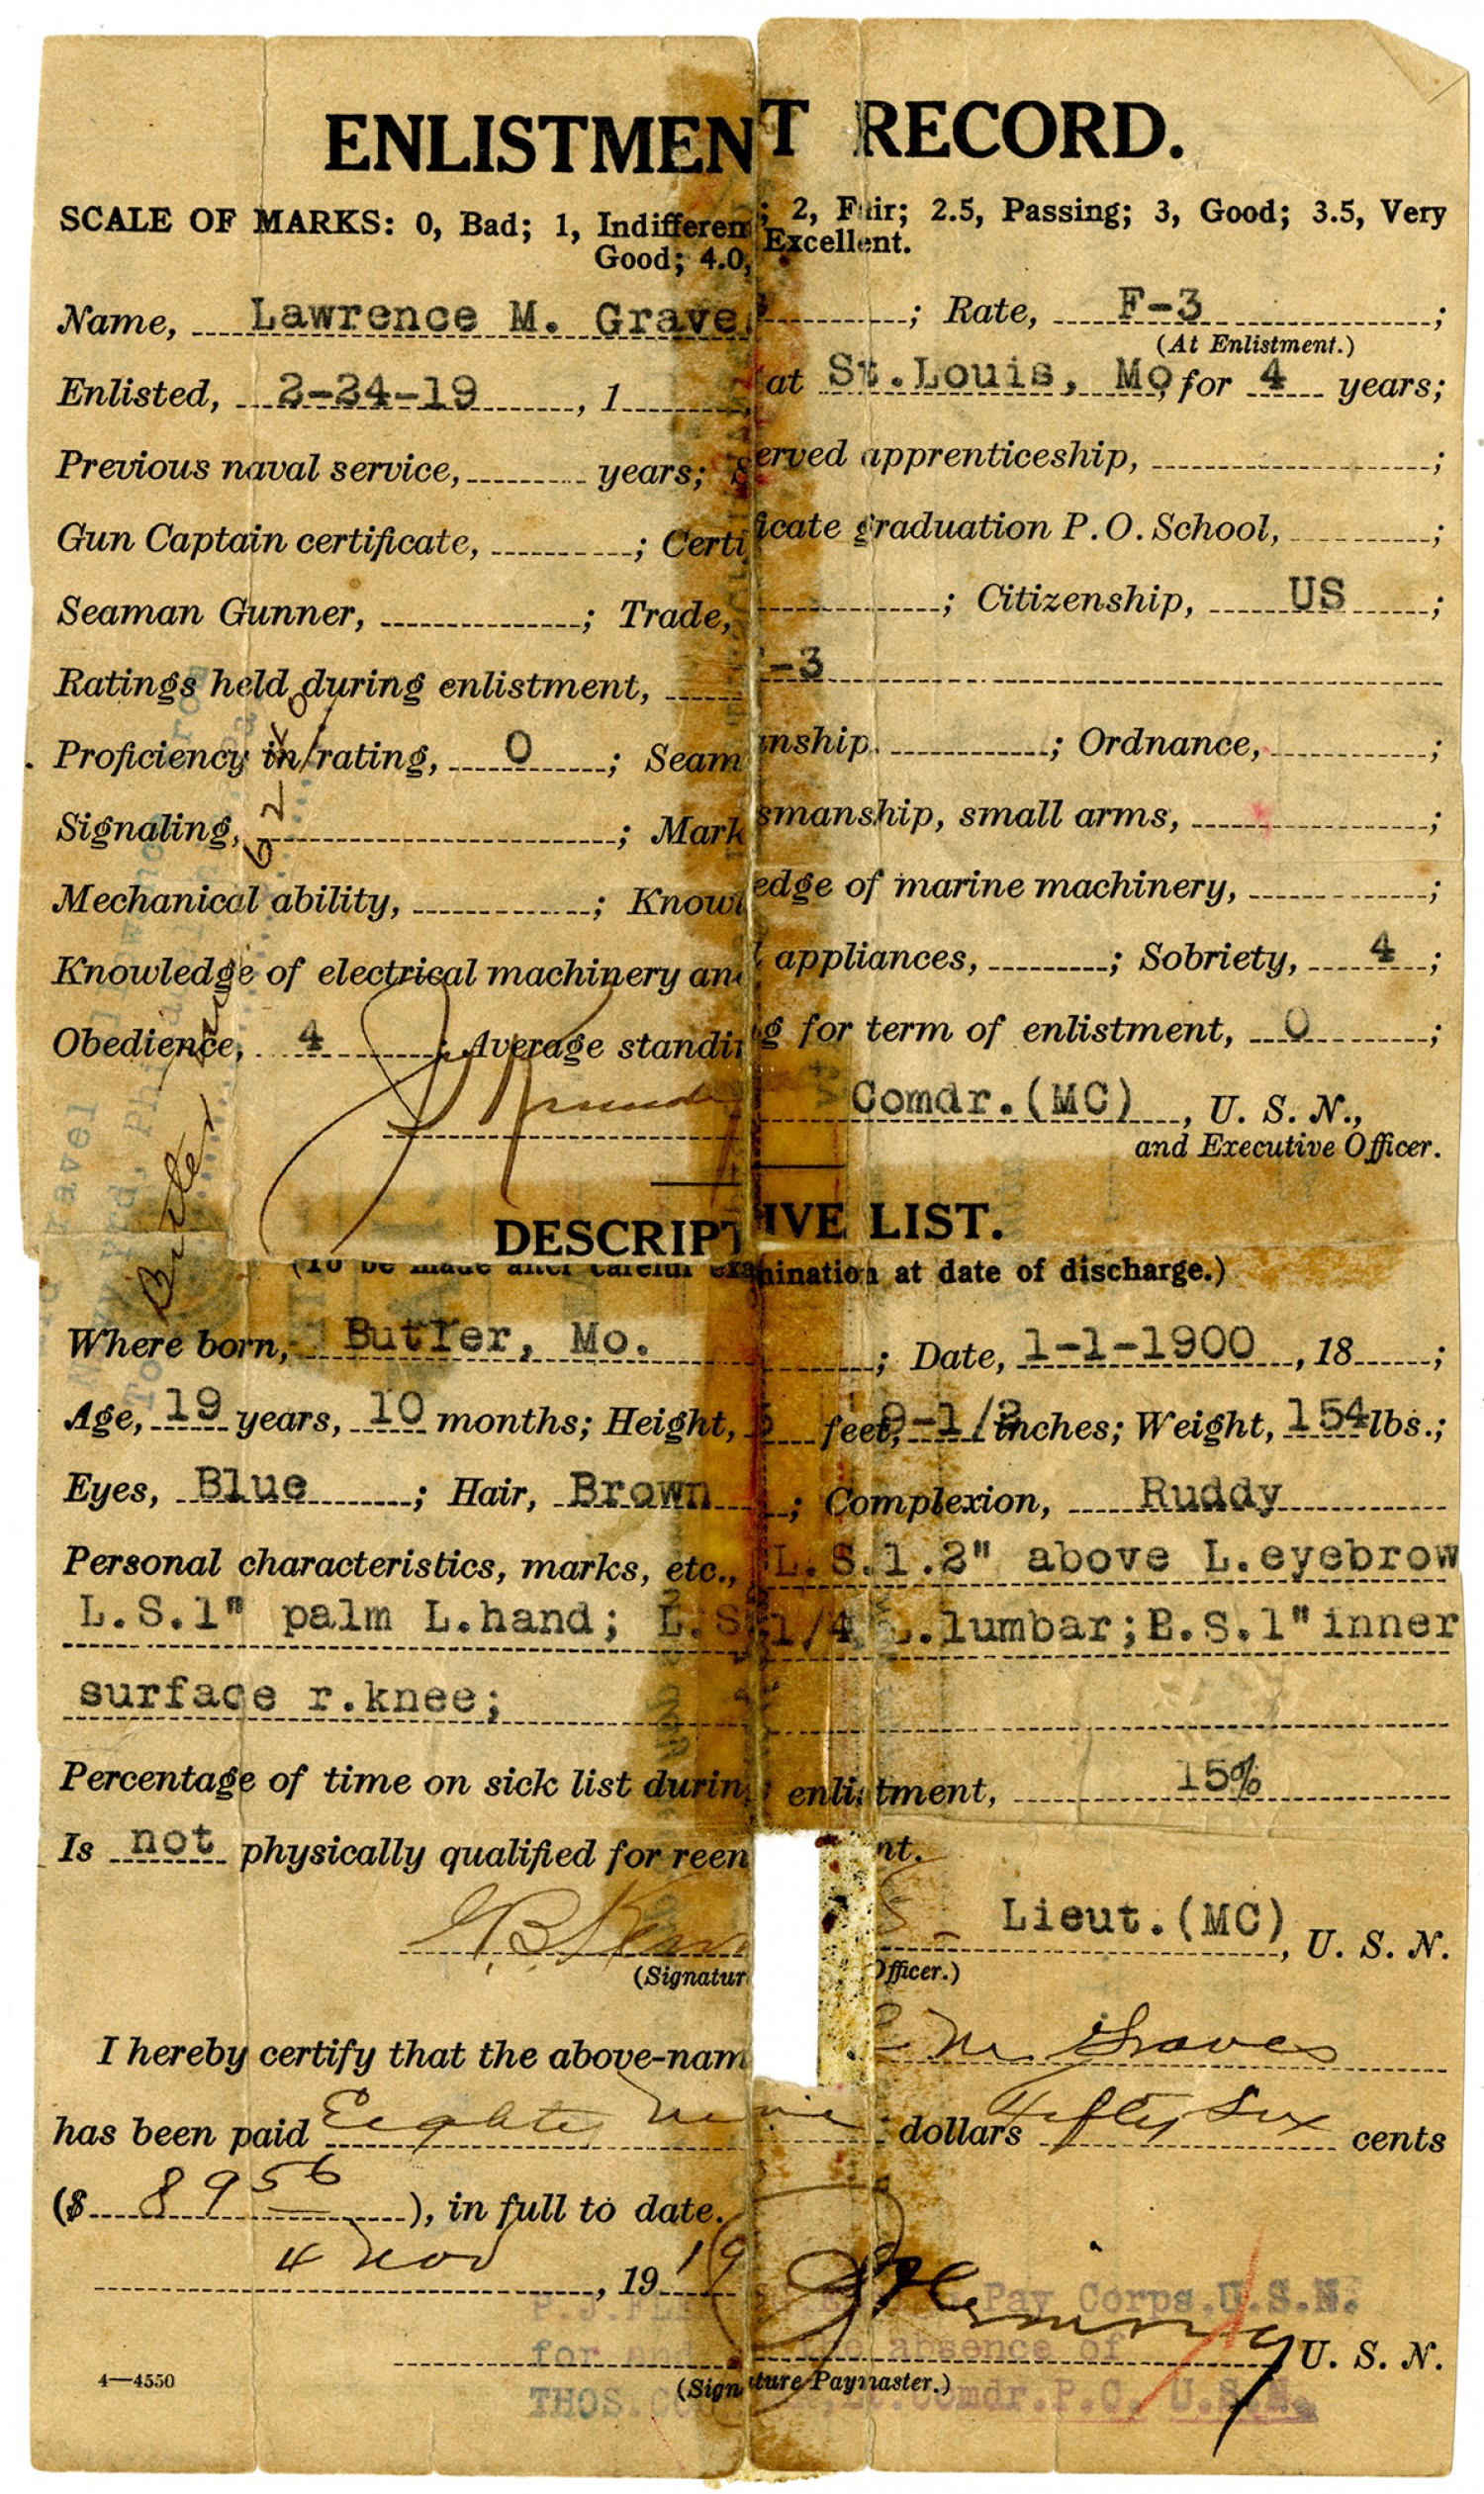 ENLISTMENT RECORD.
SCALE OF MARKS: 0, Bad; 1, Indifferen ; 2, Fair; 2.5, Passing; 3, Good; 3.5, Very
Good; 4.0, Excellent.
Name, Lawrence M. Grave ; Rate, F-3 ;
(At Enlistment.)
Enlisted, 2-24-19, 1 at St.Louis, Mo, for 4 years;
Previous naval service, years; Served apprenticeship, ;
Gun Captain certificate, ; Certificate graduation P. O. School, ;
Seaman Gunner, ; Trade, ; Citizenship, US ;
Ratings held during enlistment, -3
Proficiency in rating, 0 ; Seamanship, ; Ordnance, ;
Signaling, ; Marksmanship, small arms, ;
Mechanical ability, ; Knowledge of marine machinery, ;
Knowledge of electrical machinery and appliances, ; Sobriety, 4 ;
Obedience, 4 ; Average standing for term of enlistment, 0 ;
Comdr.(MC), U. S. N.,
and Executive Officer.
Butler
DESCRIPTIVE LIST.
(To be made after careful examination at date of discharge.)
Where born, Butler, Mo. ; Date, 1-1-1900, 18 ;
Age, 19 years, 10 months; Height, 5 feet, 9-1/2 inches; Weight, 154 lbs.;
Eyes, Blue ; Hair, Brown ; Complexion, Ruddy
Personal characteristics, marks, etc., L.S.1.2" above L.eyebrow
L.S.1" palm L.hand; L.S. 1/4 L.lumbar; E.S.1" inner
surface r.knee;
Percentage of time on sick list during enlistment, 15%
Is not physically qualified for reen nt.
Lieut.(MC), U. S. N.
(Signatur Officer.)
I hereby certify that the above-nam M Graves
has been paid Eighty nine dollars Fifty Six cents
($ 89 56 ), in full to date.
4 Nov, 19 19
Pay Corps.U.S.N.
for and the absence of
U. S. N.
(Signature Paymaster.)
THOS. Lt.Comdr.P.C, U.S.N.
4—4550